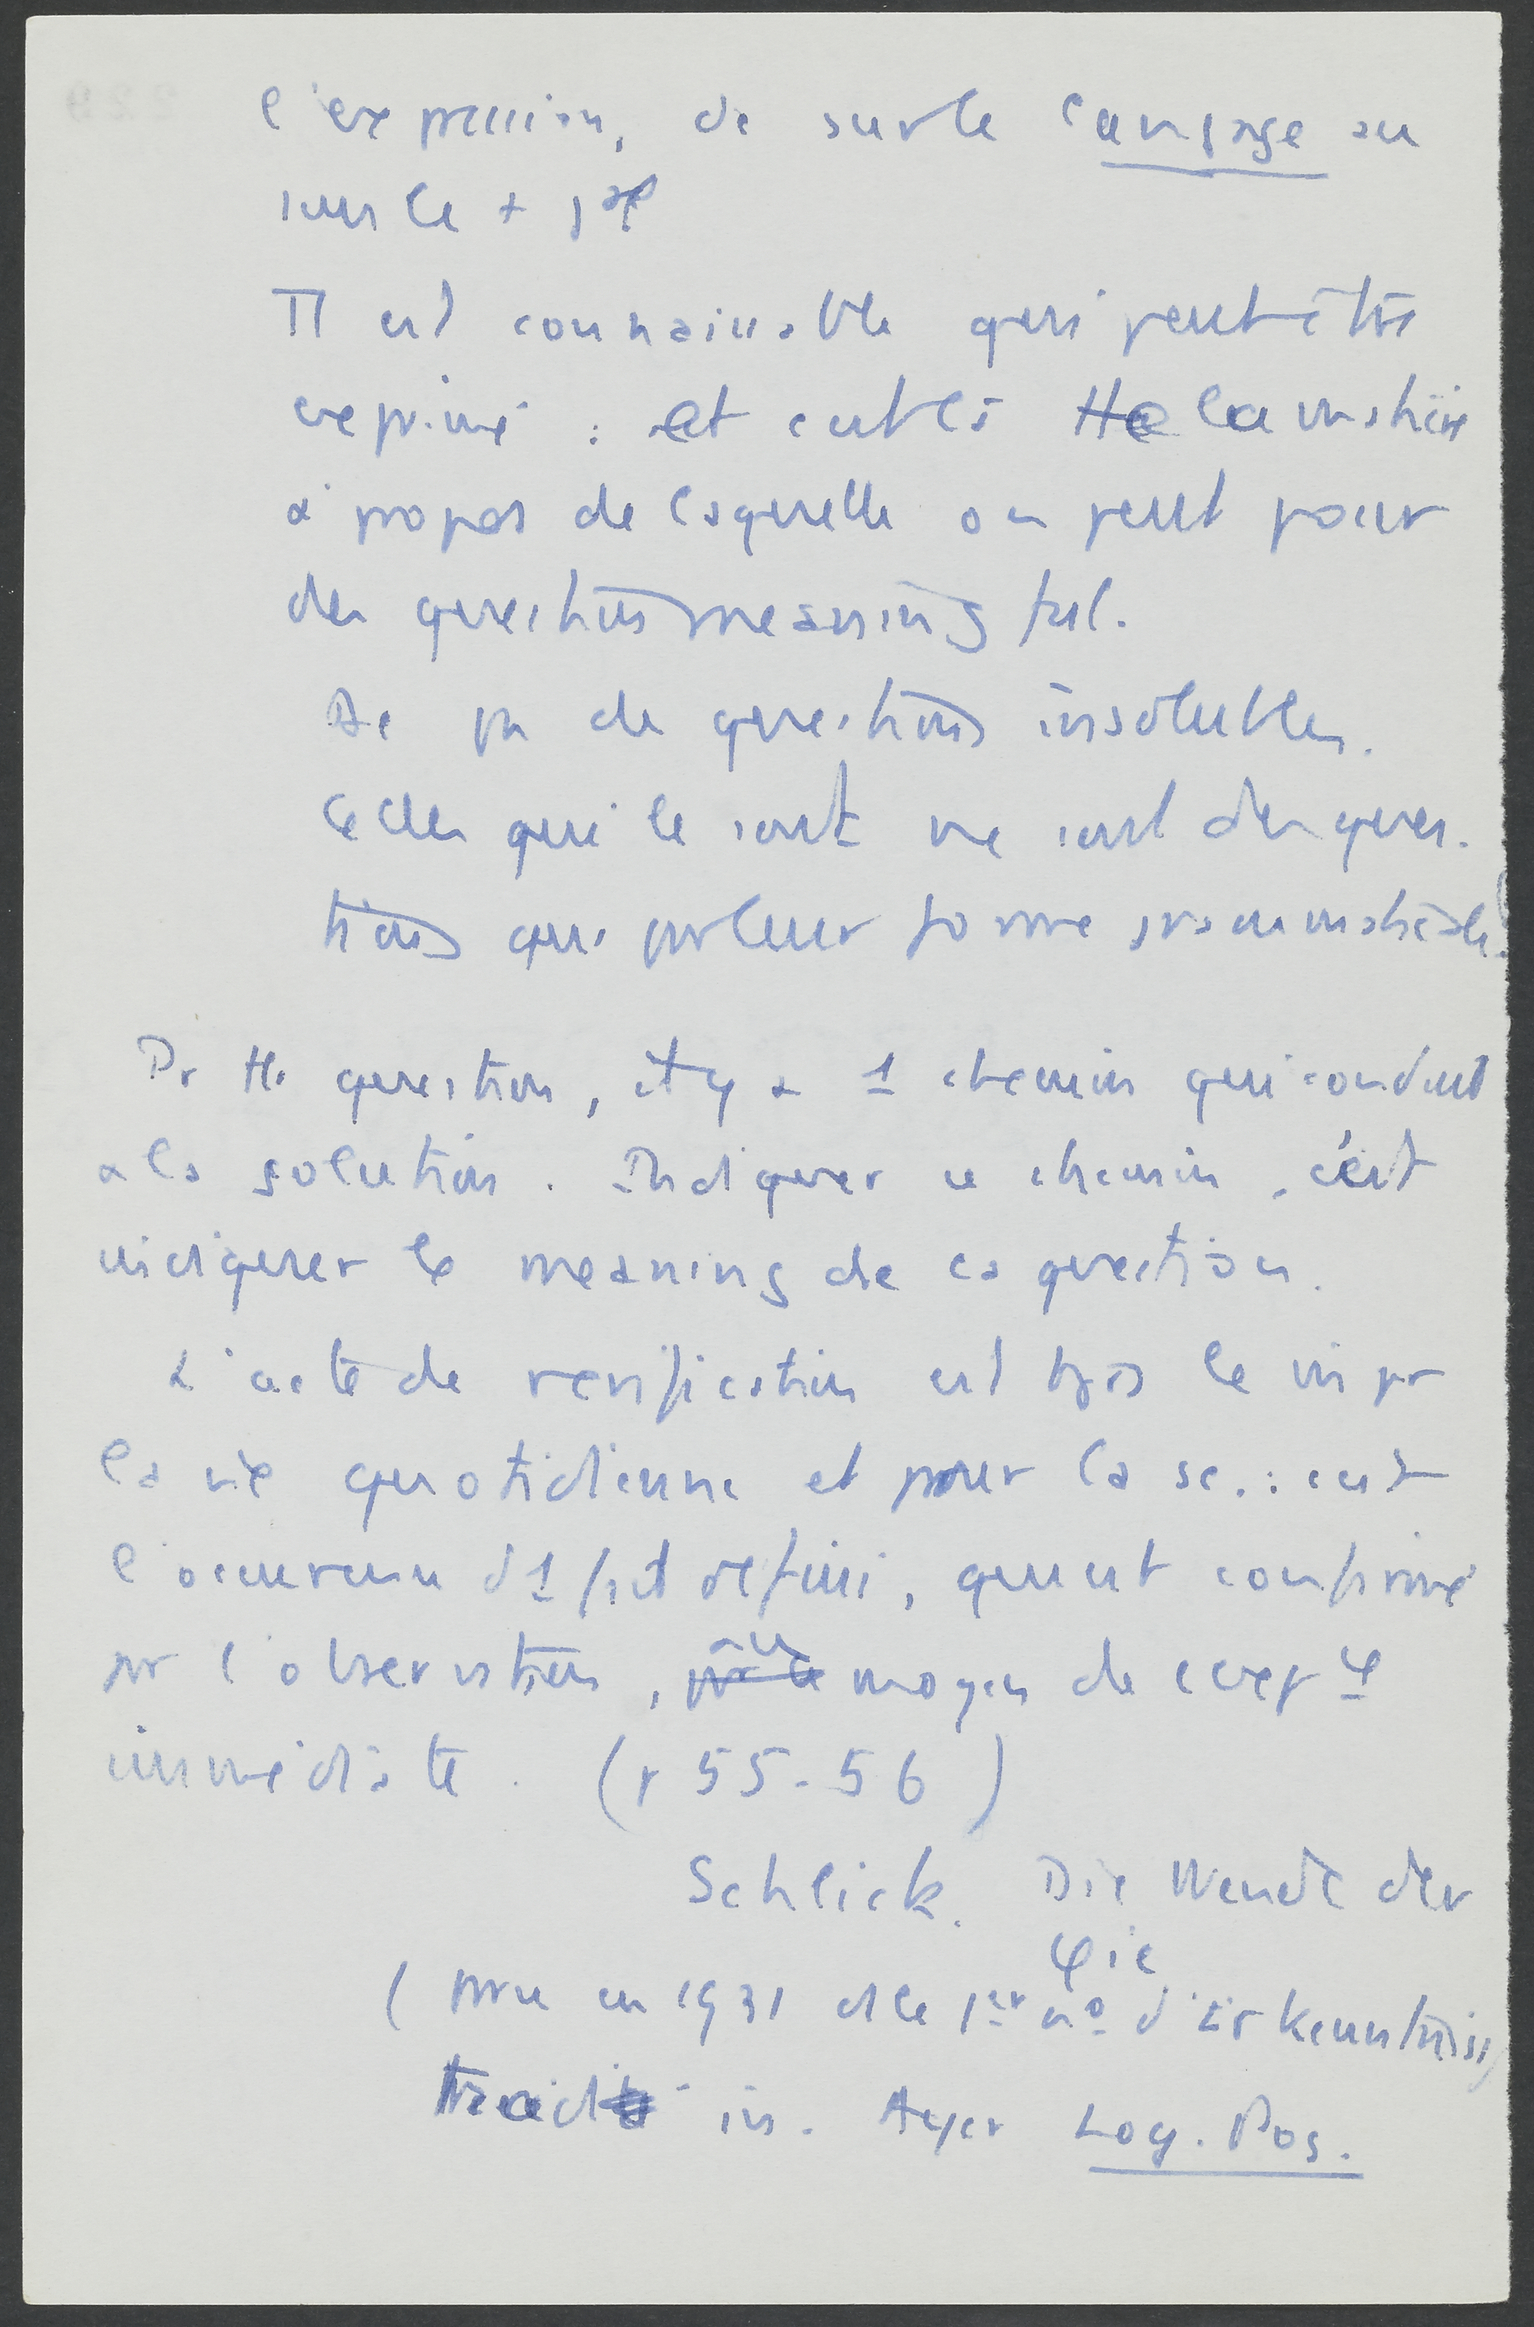 l'expression, de sur le langage au
sens le + gal
Tt est connaissable qui peut être
exprimé : et c'est là tte la matière
à propos de laquelle on peut poser
des questions meaningful.
Dc pas de questions insolubles.
Celles qui le sont ne sont des ques-
tions que par leur forme grammaticale.
Pr tte question, il y a 1 chemin qui conduit
à la solution. Indiquer ce chemin, c'est
indiquer le meaning de la question.
L'acte de vérification est tjrs le m pr
la vie quotidienne et pour la sc. : c'est
l'occurrence d'1 fait défini, qui est confirmé
par l'observation, au moyen de l'expce
immédiate. (p 55-56)
Schlick. Die Wende der
φie
(paru en 1931 ds le 1er no d'Erkenntnis,
traduit in. Ayer Log. Pos.